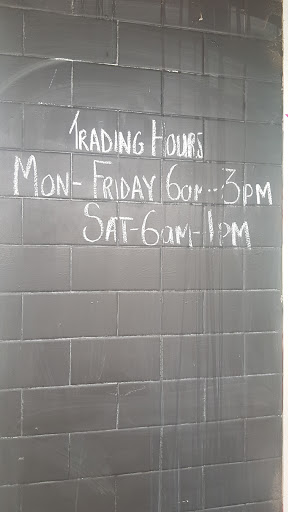 TRADING HOURS
MON- FRIDAY 6am-3PM
SAT-6am-1PM